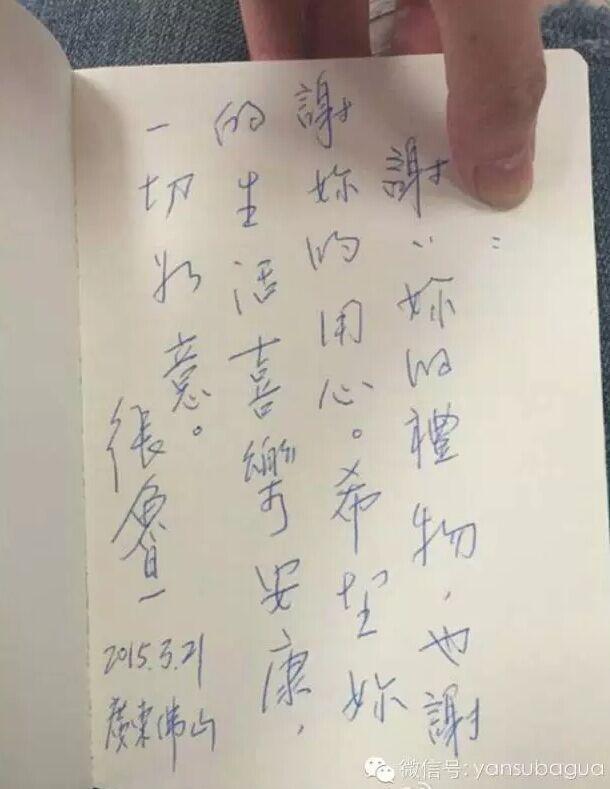 :
謝〃妳的禮物,也謝
謝妳的用心。希望妳
的生活喜樂安康,
一切如意。
張魯一
2015.3.21
廣東佛山
微信号: yansubagua